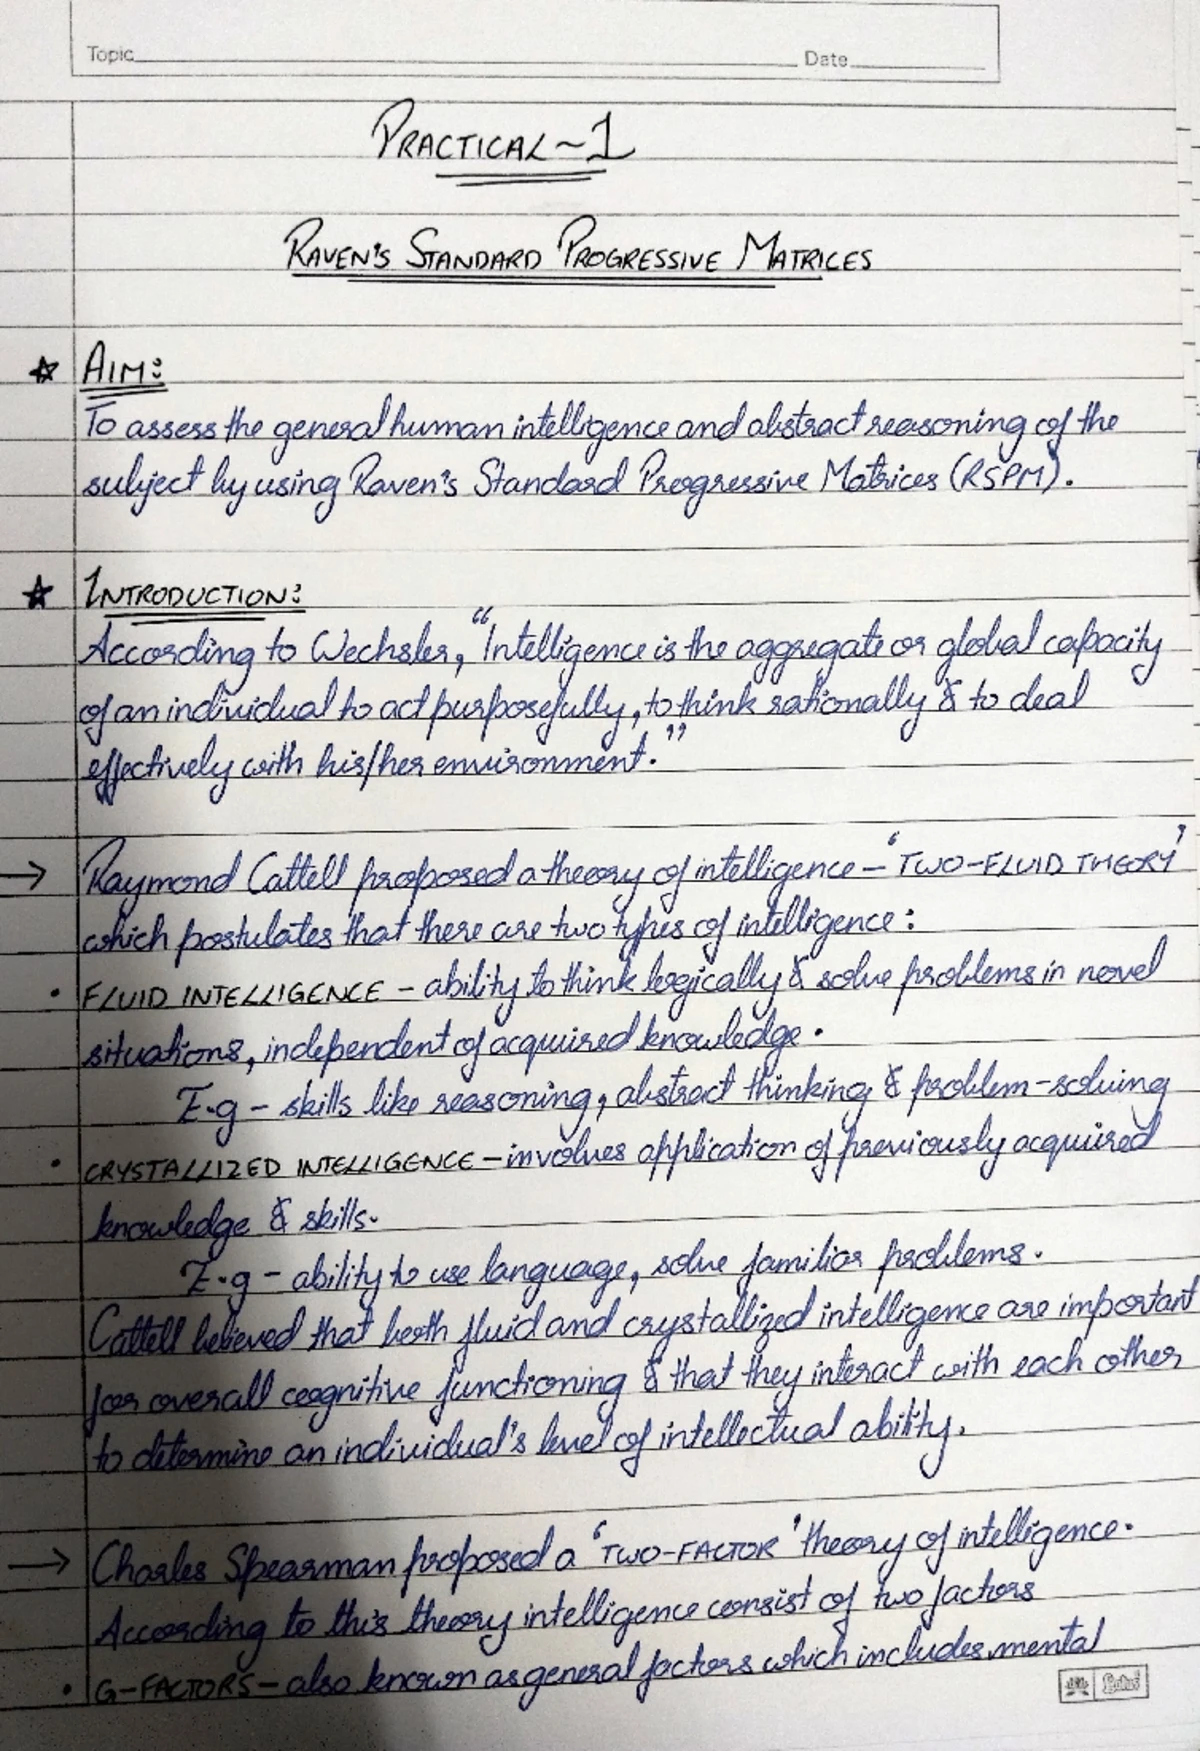 Topic Date
PRACTICAL~1
RAVEN'S STANDARD PROGRESSIVE MATRICES
☆ AIM:
To assess the general human intelligence and abstract reasoning of the
subject by using Raven's Standard Progressive Matrices (RSPM).
☆ INTRODUCTION:
According to Wechsler, "Intelligence is the aggregate or global capacity
of an individual to act purposefully, to think rationally & to deal
effectively with his/her environment."
→ Raymond Cattell proposed a theory of intelligence - 'TWO-FLUID THEORY'
which postulates that there are two types of intelligence:
• FLUID INTELLIGENCE - ability to think logically & solve problems in novel
situations, independent of acquired knowledge.
E.g - skills like reasoning, abstract thinking & problem-solving
• CRYSTALLIZED INTELLIGENCE - involves application of previously acquired
knowledge & skills.
E.g - ability to use language, solve familiar problems.
Cattell believed that both fluid and crystallized intelligence are important
for overall cognitive functioning & that they interact with each other
to determine an individual's level of intellectual ability.
→ Charles Spearman proposed a 'TWO-FACTOR' theory of intelligence.
According to this theory intelligence consist of two factors
• G-FACTORS - also known as general factors which includes mental
Lotus